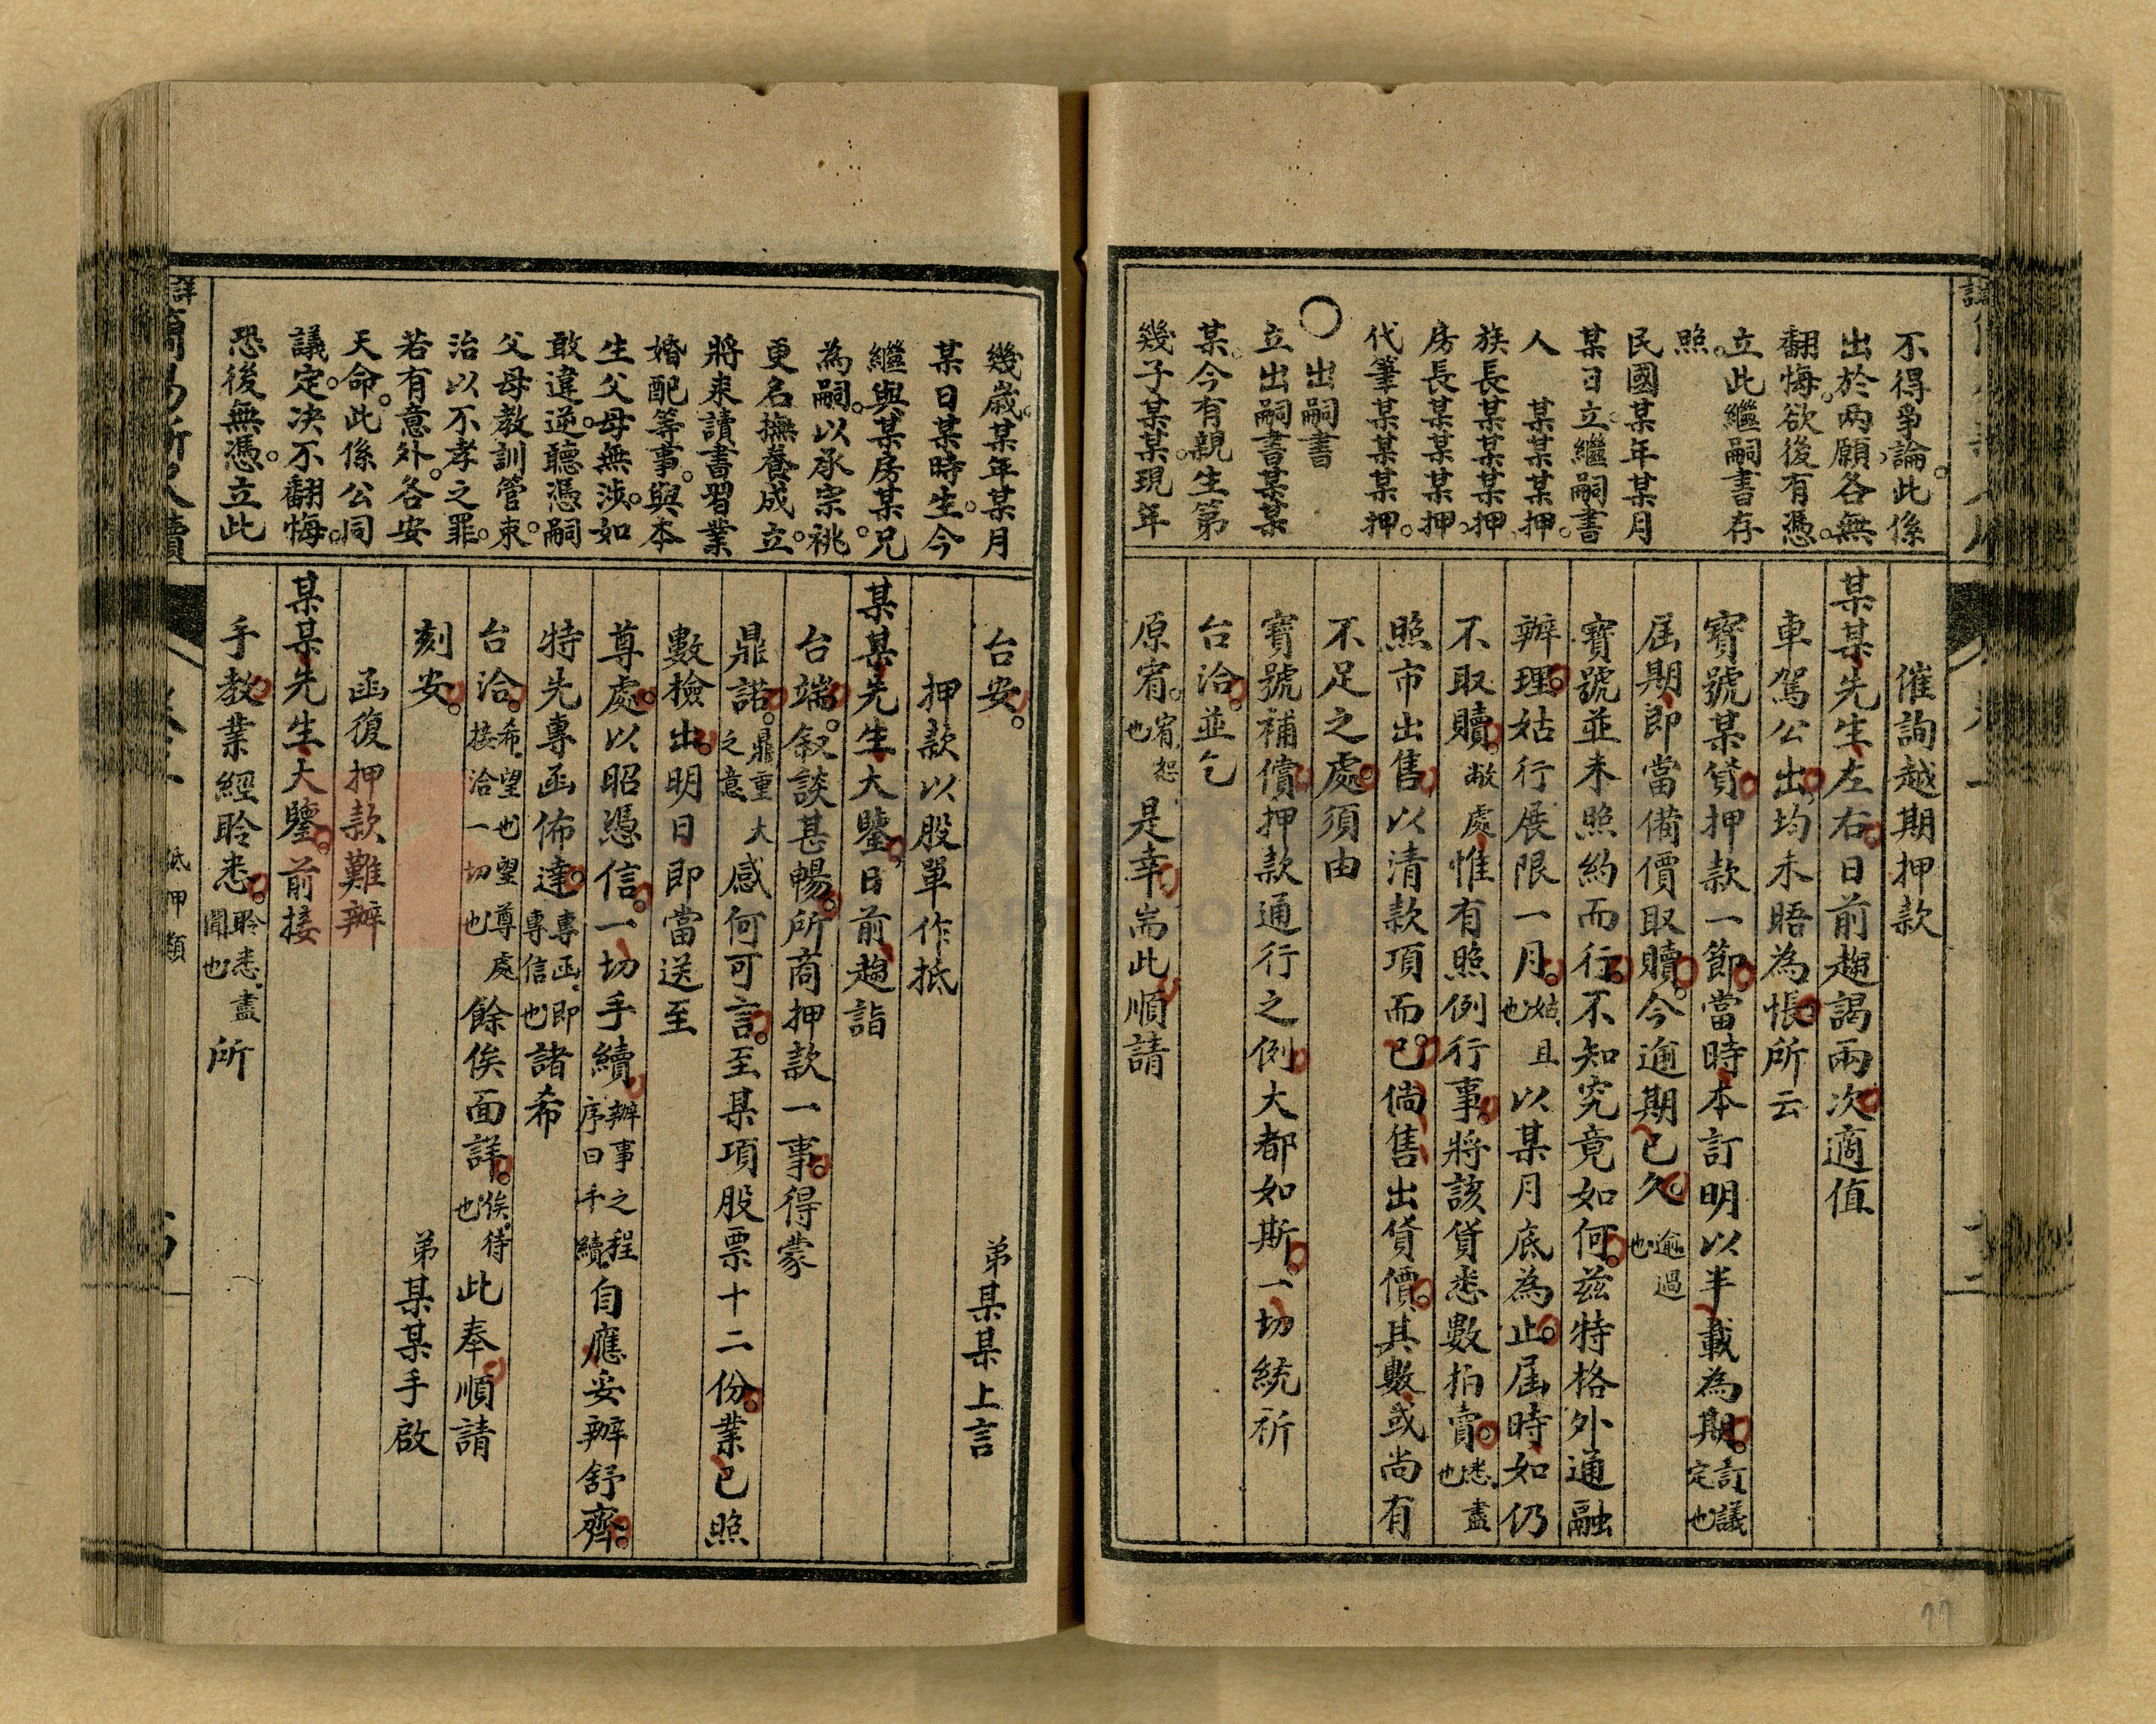 不得爭論此係
出於兩願各無
翻悔欲後有憑
立此繼嗣書存
照
民國某年某月
某日立繼嗣書
人　某某某押
族長某某某押
房長某某某押
代筆某某某押
〇　出嗣書
立出嗣書某某
某今有親生第
幾子某某現年
催詢越期押款
某某先生左右日前趨謁兩次適值
車駕公出均未晤為悵所云
寶號某貨押款一節當時本訂明以半載為期訂議定也
屆期即當備價取贖今逾期已久逾過也
寶號並未照約而行不知究竟如何茲特格外通融
辦理姑行展限一月姑且也以某月底為止屆時如仍
不取贖敝處惟有照例行事將該貨悉數拍賣悉盡也
照市出售以清款項而已倘售出貨價其數或尚有
不足之處須由
寶號補償押款通行之例大都如斯一切統祈
台洽並乞
原宥宥恕也是幸耑此順請
幾歲某年某月
某日某時生今
繼與某房某兄
為嗣以承宗祧
更名撫養成立
將來讀書習業
婚配等事與本
生父母無涉如
敢違逆聽憑嗣
父母教訓管束
治以不孝之罪
若有意外各安
天命此係公同
議定決不翻悔
恐後無憑立此
台安
弟某某上言
押款以股單作抵
某某先生大鑒日前趨詣
台端敘談甚暢所商押款一事得蒙
鼎諾鼎重大之意感何可言至某項股票十二份業已照
數檢出明日即當送至
尊處以昭憑信一切手續辦事之程序曰手續自應妥辦舒齊
特先專函佈達專函即專信也諸希
台洽希望也望尊處接洽一切也餘俟面詳俟待也此奉順請
刻安
弟某某手啟
函復押款難辦
某某先生大鑒前接
手教業經聆悉聆悉盡聞也所
抵押類